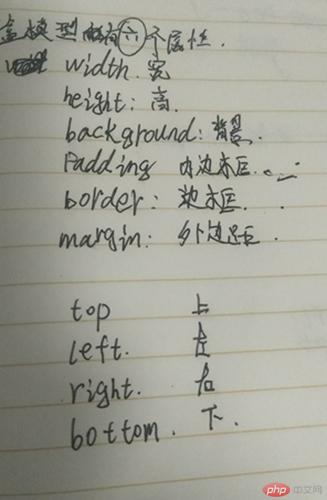 盒模型有六个属性.
width. 宽
height: 高.
background: 背景.
Padding 内边框.
border: 边框.
margin: 外边距.
top 上
left. 左
right. 右
bottom. 下.
php 中文网